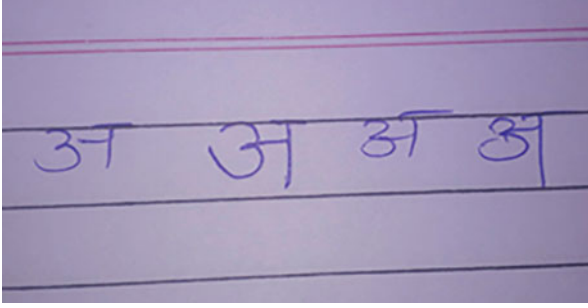 अ अ अ अ